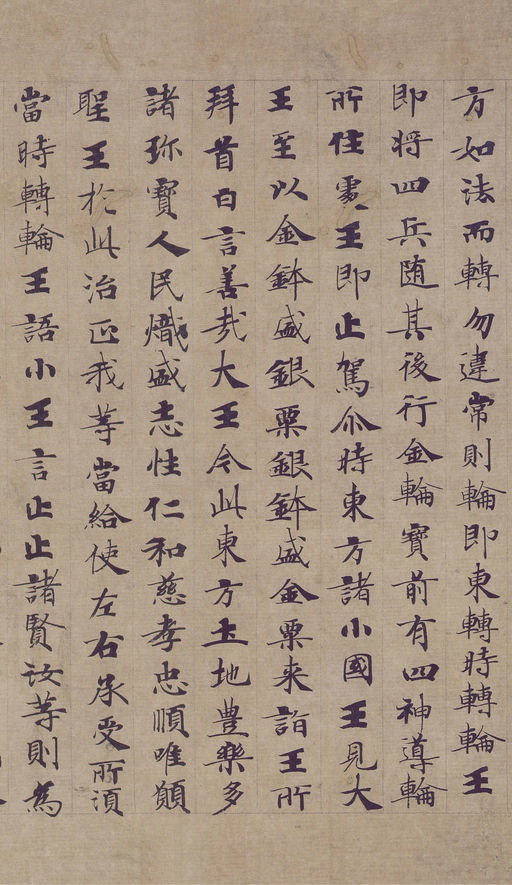 方如法而轉勿違常則輪即東轉時轉輪王
即将四兵随其後行金輪寶前有四神導輪
所住處王即止駕尒時東方諸小國王見大
王至以金鉢盛銀粟銀鉢盛金粟来詣王所
拜首白言善㢤大王今此東方土地豊樂多
諸珎寶人民熾盛志性仁和慈孝忠順唯願
聖王於此治正我等當給使左右承受所湏
當時轉輪王語小王言止止諸賢汝等則為